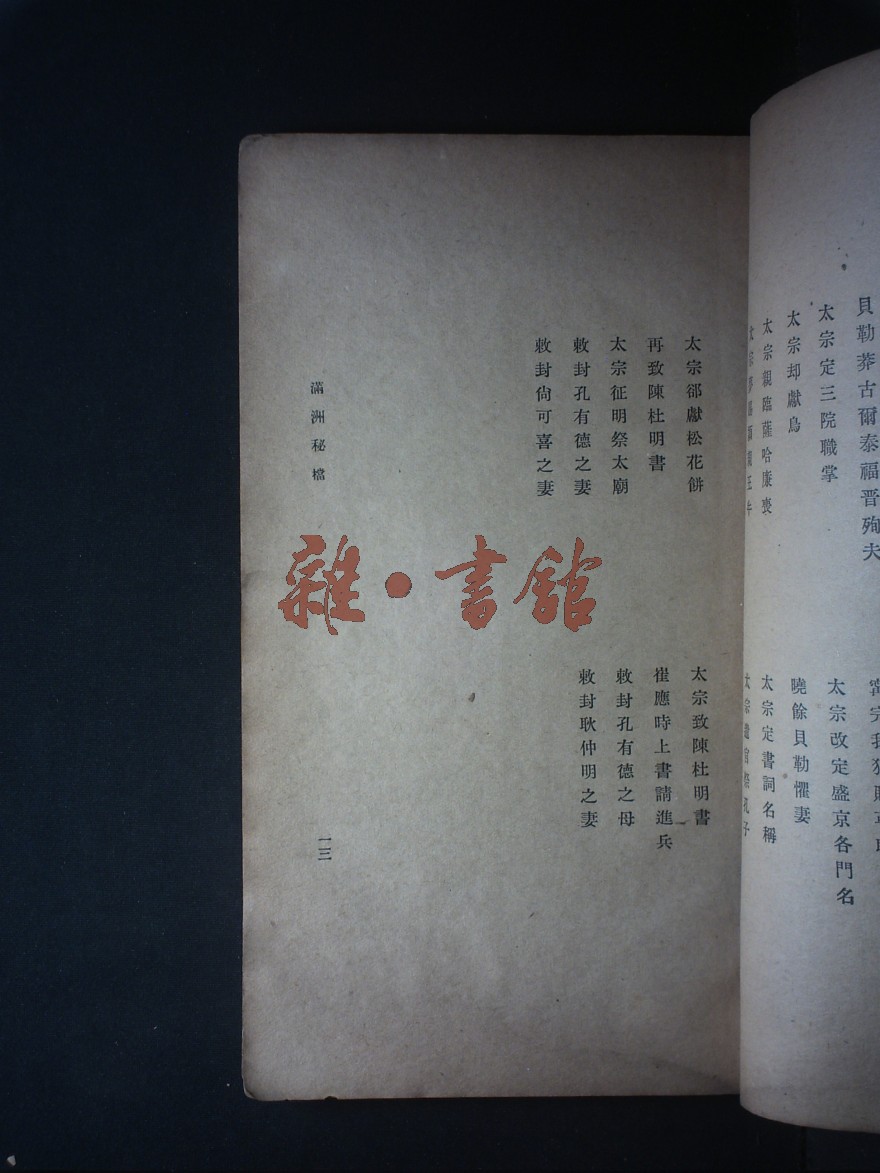 貝勒莽古爾泰福晋殉夫
太宗定三院職掌
太宗改定盛京各門名
太宗却獻鳥
曉餘貝勒懼妻
太宗親臨薩哈廉喪
太宗定書詞名稱
太宗遣官祭孔子
太宗郤獻松花餅
太宗致陳杜明書
再致陳杜明書
崔應時上書請進兵
太宗征明祭太廟
敕封孔有德之母
敕封孔有德之妻
敕封耿仲明之妻
敕封尙可喜之妻
滿洲秘檔
一三
雜·書館